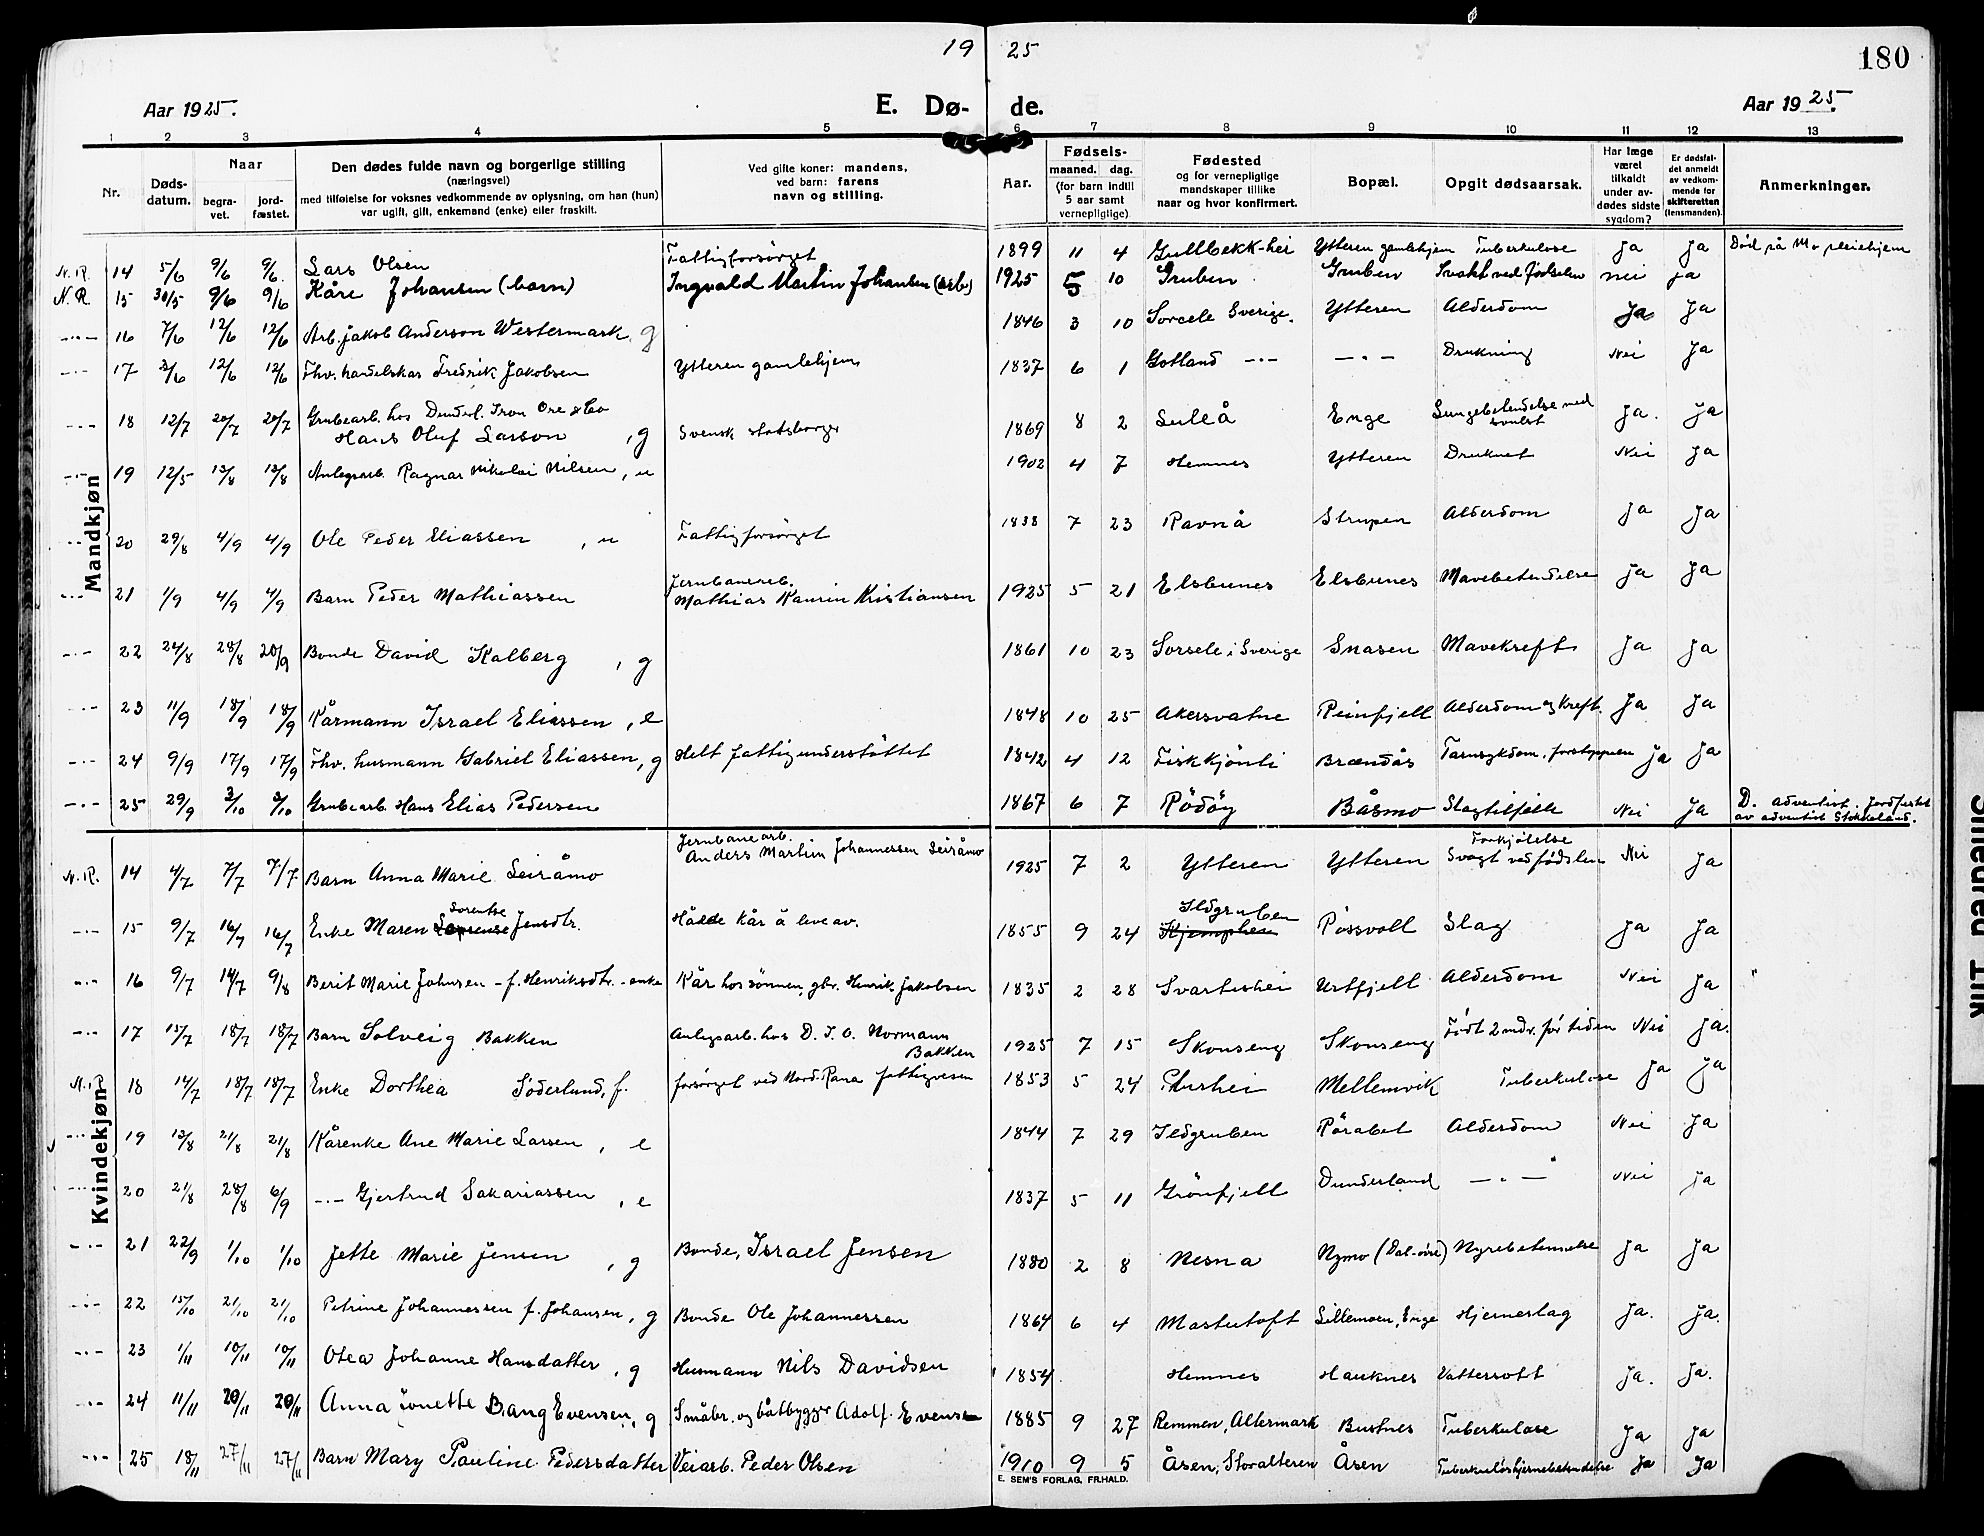 19 25
180
Aar 1925.
E. Dø- de.
Aar 1925.
1 2 3 4 5 6 7 8 9 10 11 12 13
Nr.
Døds-
datum.
Naar
begra-
vet.
jord-
fæstet.
Den dødes fulde navn og borgerlige stilling
(næringsvei)
med tilføielse for voksnes vedkommende av oplysning, om han (hun)
var ugift, gift, enkemand (enke) eller fraskilt.
Ved gifte koner: mandens,
ved barn: farens
navn og stilling.
Aar.
Fødsels-
maaned. dag.
(for barn indtil
5 aar samt
vernepligtige)
Fødested
og for vernepligtige
mandskaper tillike
naar og hvor konfirmert.
Bopæl.
Opgit dødsaarsak.
Har læge
været
tilkaldt
under av-
dødes sidste
sygdom?
Er dødsfal-
det anmeldt
av vedkom-
mende for
skifteretten
(lensmanden).
Anmerkninger.
Mandkjøn
N.R. 14 5/6 9/6 9/6 Lars Olsen Fattigforsørget 1899 11 4 Gullbekk-hei Ytteren gamlehjem Tuberkulose Ja Ja Død på Mo pleiehjem
N.R. 15 30/5 9/6 9/6 Kåre Johansen (barn) Ingvald Martin Johansen (arb) 1925 5 10 Gruben Gruben Svakt ved fødselen nei ja
-"- 16 7/6 12/6 12/6 Arb. Jakob Anderson Westermark, g 1846 3 10 Sorcele Sverige. Ytteren Alderdom Ja Ja
-"- 17 3/6 12/6 12/6 Fhv. handelskar Fredrik Jakobsen Ytteren gamlehjem 1837 6 1 Gotland -"- -"- Drukning Nei Ja
-"- 18 12/7 20/7 20/7 Grubearb. hos Dunderl. Iron Ore & Co
Hans Oluf Larson, g Svensk statsborger 1869 8 2 Luleå Enge Lungebetendelse med
svulst Ja. Ja
-"- 19 12/5 13/8 13/8 Anlegsarb. Ragnar Nikolai Nilsen, u 1902 4 7 Hemnes Ytteren Druknet Nei Ja
-"- 20 29/8 4/9 4/9 Ole Peder Eliassen, u Fattigforsørget 1838 7 23 Ravnå Strupen Alderdom Ja Ja
-"- 21 1/9 4/9 4/9 Barn Peder Mathiassen Jernbanearb.
Mathias Kaurin Kristiansen 1925 5 21 Elsbunes Elsbunes Mavebetendelse Ja Ja
-"- 22 24/8 28/8 20/9 Bonde David Kalberg, g 1861 10 23 Sorsele i Sverige Snasen Mavekreft Ja Ja
-"- 23 11/9 18/9 18/9 Kårmann Israel Eliassen, e 1848 10 25 Akersvatne Reinfjell Alderdom og kreft. Ja Ja
-"- 24 9/9 17/9 17/9 Fhv. husmann Gabriel Eliassen, g Helt fattigunderstøttet 1842 4 12 Fiskkjønli Brændås Tarmsykdom, forstoppelse Ja Ja
-"- 25 29/9 3/10 3/10 Grubearb. Hans Elias Pedersen 1867 6 7 Rödöy Båsmo Slagtilfelle Nei Ja D. adventist. Jordfestet
av adventist Stokkeland.
Kvindekjøn
N.R. 14 4/7 7/7 7/7 Barn Anna Marie Seiråmo Jernbanearb.
Anders Martin Johannessen Seiråmo 1925 7 2 Ytteren Ytteren Forkjølelse
Svagt ved fødslen Nei Ja
-"- 15 9/7 16/7 16/7 Enke Maren Lorentse Jensdtr. Hadde kår å leve av. 1855 9 24 Ildgruben Røssvoll Slag Ja Ja
-"- 16 9/7 14/7 9/8 Berit Marie Johnsen - f. Henriksdtr. - enke Kår hos sønnen, gbr. Henrik Jakobsen 1835 2 28 Svartishei Urtfjell Alderdom Nei Ja
-"- 17 15/7 18/7 18/7 Barn Solveig Bakken Anlegsarb. hos D. I. O. Normann
Bakken 1925 7 15 Skonseng Skonseng Født 2 mdr. før tiden Nei Ja.
N.R. 18 14/7 18/7 18/7 Enke Dorthea Söderlund, f. forsørget ved Nord-Rana fattigvesen 1853 5 24 Mellemvik Tuberkulose Ja Ja
-"- 19 13/8 21/8 21/8 Kårenke Ane Marie Larsen, e 1844 7 29 Ildgruben Rørabet Alderdom Nei Ja
-"- 20 21/8 28/8 6/9 -"- Gjertrud Sakariassen, e 1837 5 11 Grönfjell Dunderland -"- Nei Ja
-"- 21 22/9 1/10 1/10 Jette Marie Jensen, g Bonde, Israel Jensen 1880 2 8 Nesna Nymo (Dal-øvre) Nyrebetennelse Ja Ja
-"- 22 15/10 21/10 21/10 Petrine Johannessen f. Johansen, g Bonde Ole Johannessen 1864 6 4 Mastutoft Lillemoen, Enge Hjerneslag Ja. Ja.
-"- 23 1/11 10/11 10/11 Olea Johanne Hansdatter, g Husmann Nils Davidsen 1854 Hemnes Hauknes Vattersott Ja. Ja.
-"- 24 11/11 20/11 20/11 Anna Jonette Bang Evensen, g Småbr. og båtbygger Adolf Evensen 1885 9 27 Remmen, Altermark Bustnes Tuberkulose Ja Ja
-"- 25 18/11 27/11 27/11 Barn Mary Pauline Pedersdatter Veiarb. Peder Olsen 1910 9 5 Åsen, Storalteren Åsen Tuberkuløshjernebetendelse Ja Ja
E. SEM'S FORLAG, FR.HALD.